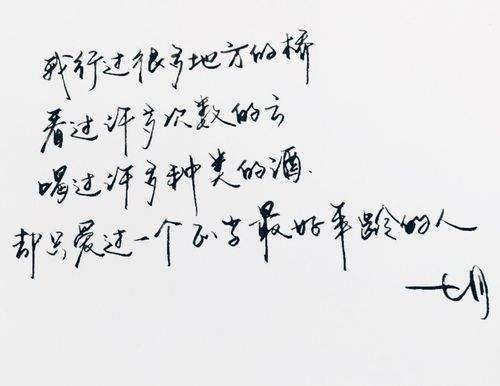 我行过很多地方的桥
看过许多次数的云
喝过许多种类的酒.
却只爱过一个正当最好年龄的人
七月